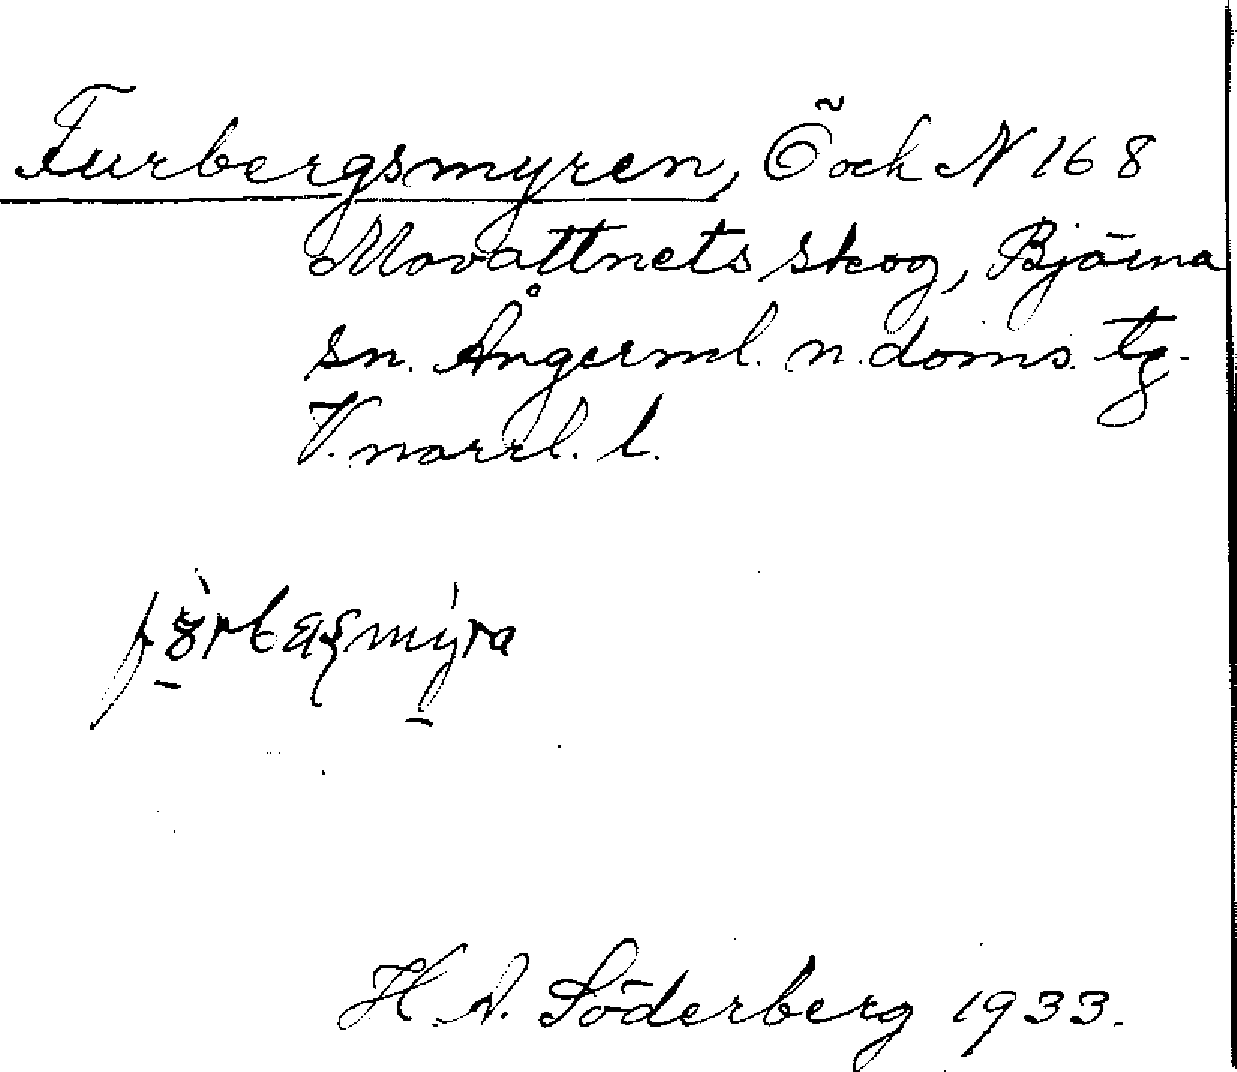 Furbergsmyren, Ö och N 168
Movattnets skog, Björna
sn. Ångerml. n. doms. tg.
V. norrl. l.
H. A. Söderberg 1933.